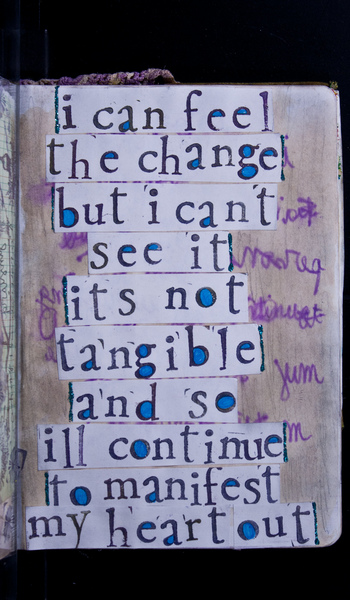 i can feel
the change
but i can't
see it
its not
tangible
and so
ill continue
to manifest
my heart out